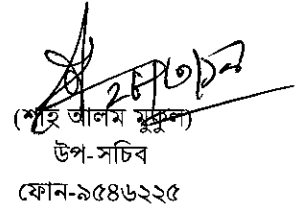 ২৮/৩/১৯
(শাহ আলম মুকুল)
উপ-সচিব
ফোন-৯৫৪৬২২৫